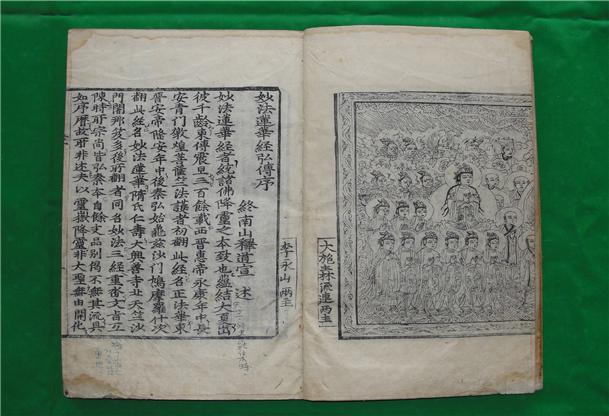 妙法蓮華經弘傳序
終南山釋道宣 述
妙法蓮華經者統諸佛降靈之本致也蘊結大夏出
彼千齡東傳震旦三百餘載西晉惠帝永康年中長
安青門燉煌菩薩竺法護者初翻此經名正法華東
晉安帝隆安年中後秦弘始龜茲沙門鳩摩羅什次
翻此經名妙法蓮華隋氏仁壽大興善寺北天竺沙
門闍那笈多後所翻者同名妙法三經重沓文旨互
陳時所宗尚皆弘秦本自餘支品別偈不無其流具
如序曆故所非述夫以靈嶽降靈非大聖無由開化
李永山 兩主
大施 林 兩主